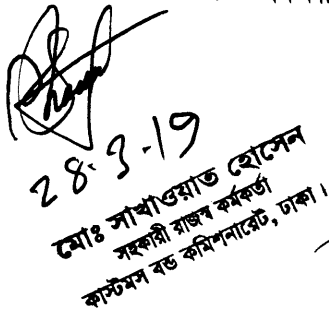 28.3.19
মোঃ সাখাওয়াত হোসেন
সহকারী রাজস্ব কর্মকর্তা
কাস্টমস বন্ড কমিশনারেট, ঢাকা।